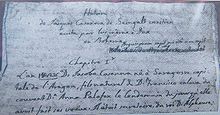 Histoire
de Jacques Casanova de Seingalt vénitien
écrite par lui même à Dux
en Bohême
Chapitre I
L'an D. Jacobe Casanova né à Saragosse capi-
tale de l'Aragon, fils naturel de D. Francisco enleva du
couvent D. Anna Palafox le lendemain du jour qu'elle
avoit fait ses vœux. Il étoit secrétaire du roi D. Alphonse